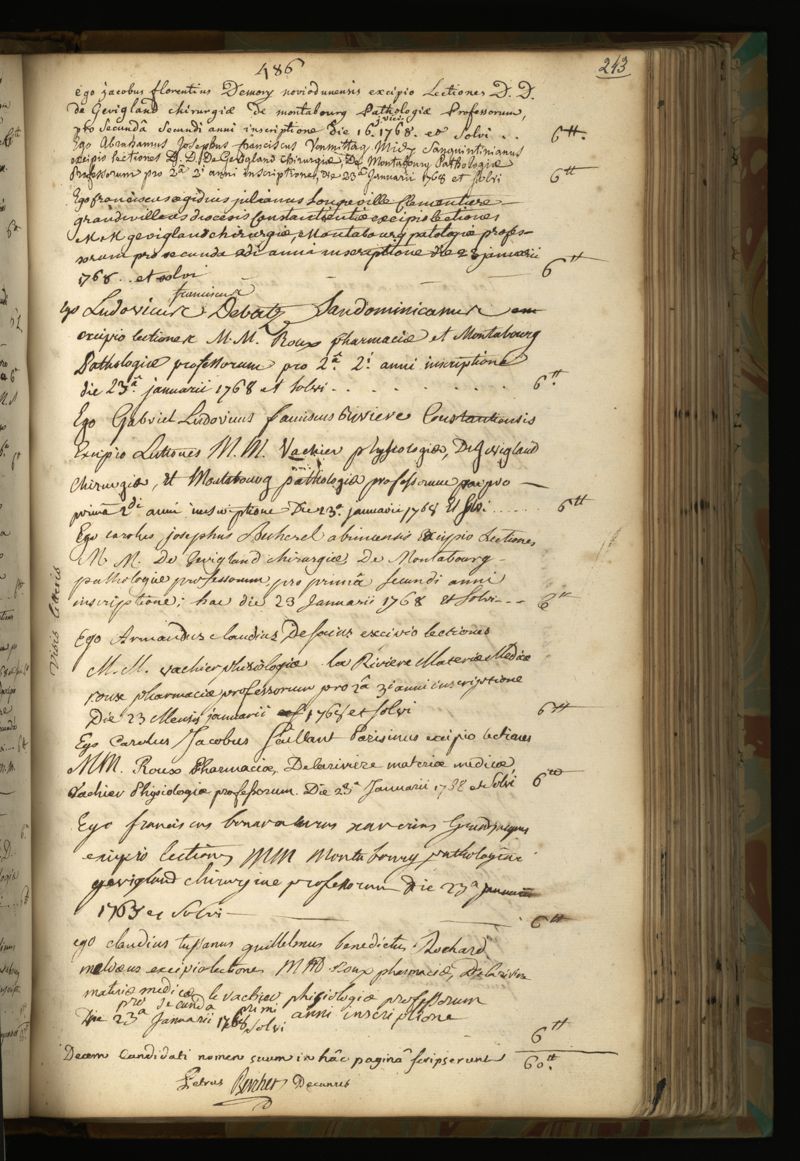 486
243
ego jacobus florentius Demory noviodunensis excipio Lectiones D. D.
de Gevigland chirurgiæ De montabourg Pathologiæ Professorum,
pro secundâ secundi anni inscriptione die 16 1768. et solvi .. 6tt.
Ego Abrahamus Josephus franciscus Sanquintinianus
excipio lectiones D. D. De Gevigland Chirurgiæ, De Montabourg Pathologiæ
Professorum pro 2a 2i anni inscriptione, die 23a Januarii 1768 et solvi 6tt
Ego franciscus ægidius julianus Longueville
grandivillæus diœcesis constantientiæ excipio lectiones
M. M gevigland chirurgiæ, Montabourg patologiæ profes-
sorum pro secunda 2di anni inscriptione die 23 januarii
1768 .. et solvi 6tt
franciscus
Ego Ludovicus Debartz Sandominicanus
excipio lectiones M. M. Roux pharmaciæ et Montabourg
Pathologiæ professorum pro 2a. 2i anni inscriptione
die 23a januarii 1768 et solvi . . . . . . . . 6tt
Ego Gabriel Ludovicus Constantiensis
Excipio Lectiones M. M. Vachier physiologiæ, De gevigland
chirurgiæ, et Montabourg pathologiæ professorum pro
prima 2di anni inscriptione Die 23a januarii 1768 Et solvi ...... 6tt
Ego carolus josephus excipio Lectiones
M M. De Gevigland chirurgiæ, De Montabourg
pathologiæ professorum, pro primâ secundi anni
inscriptione; hac die 23 Januarii 1768 et solvi ... 6tt
Visis litteris
Ego Armandus claudius excipio lectiones
M. M. vachier phisiologiæ la Riviere Materiæ Medicæ
roux pharmaciæ professorum pro 2a 3i anni inscriptione
Die 23 Mensis januarii 1768 et solvi 6tt
Ego Carolus Jacobus Saillant Parisinus excipio lectiones
MM. Roux Pharmaciæ, Delariviere materiæ medicæ
Vachier Physiologiæ professorum. Die 23a Januarii 1768 et solvi 6tt
Ego franciscus xaverius
excipio lectiones MM Montabourg pathologiæ
gevigland chirurgiæ professorum die 23a januarii
1768 et solvi 6tt
ego claudius guillelmus benedictus Rochard
meldæus excipio lectiones MM roux pharmaciæ, Delariviere
materiæ medicæ le vachier phisiologiæ professorum
pro secunda primi anni inscriptione
Die 23a Januarii 1768 solvi 6tt
Decem Candidati nomen suum in hâc paginâ scripserunt 60tt.
Petrus Bercher Decanus